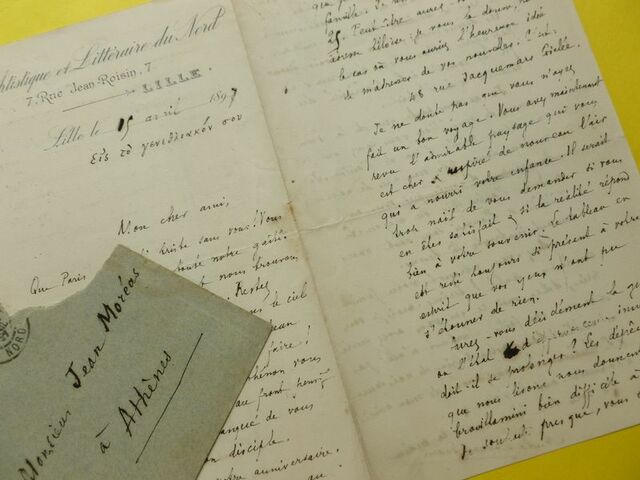 Artistique et Littéraire du Nord
7, Rue Jean Roisin, 7
LILLE
Lille le 15 avril 1897
Εἰς τὸ γενέθλιακόν σου
Mon cher ami,
Que Paris triste sans vous! Vous
notre gaîté
nous trouvons
Restez
le ciel
Jean
faire!
vous
front
de vous
disciple.
anniversaire.
au
NORD
Monsieur
Jean Moréas
à Athènes
que
famille. Je
25. Peut-être aurez
je vous le donne,
le cas où vous auriez l'heureuse idée
de m'adresser de vos nouvelles. C'est:
48 rue Jacquemars Giélée.
Je ne doute pas que vous n'ayez
fait un bon voyage. Vous avez maintenant
revu l'admirable paysage qui vous
est cher & respiré de nouveau l'air
qui a nourri votre enfance. Il serait
trop naïf de vous demander si vous
en êtes satisfait & si la réalité répond
bien à votre souvenir. Le tableau en
est resté toujours si présent à votre
esprit que vos yeux n'ont pu
s'étonner de rien.
Aurez-vous décidément la
ou l'état
doit-il se prolonger? Les dépêches
que nous lisons nous donnent
brouillamini bien difficile à
Je suis presque, vous